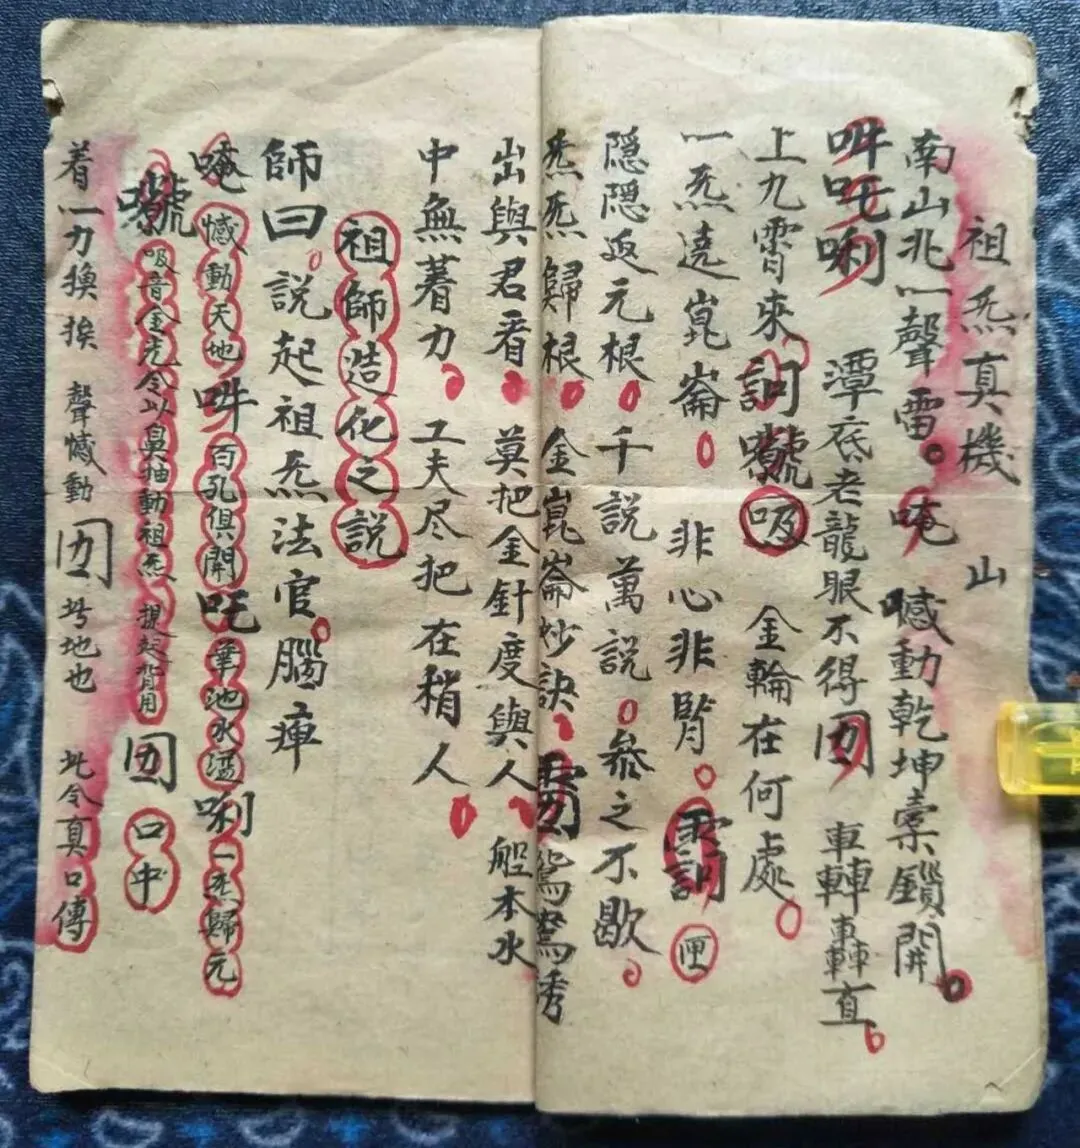 祖炁真機 山
南山北一聲雷。唵 憾動乾坤橐鑰開
吽吒唎 潭底老龍眼不得囝 車轉轟轟直
上九霄來 訶嚱吸 金輪在何處
一炁遶崑崙 非心非腎 訶 匣
隱隱返元根 千說萬說 參之不歇
炁炁歸根 金崑崙妙訣 鴛鴦秀
出與君看 莫把金針度與人 船本水
中無著力 工夫尽把在稍人
祖師造化之說
師曰說起祖炁法官腦痺
唵 憾動天地 吽 百孔俱開 吒 華池水滿 唎 一炁歸元
吸音金光令以鼻抽動祖炁 提起背用 口中
着一力換挨 聲憾動 地也 此令真口傳